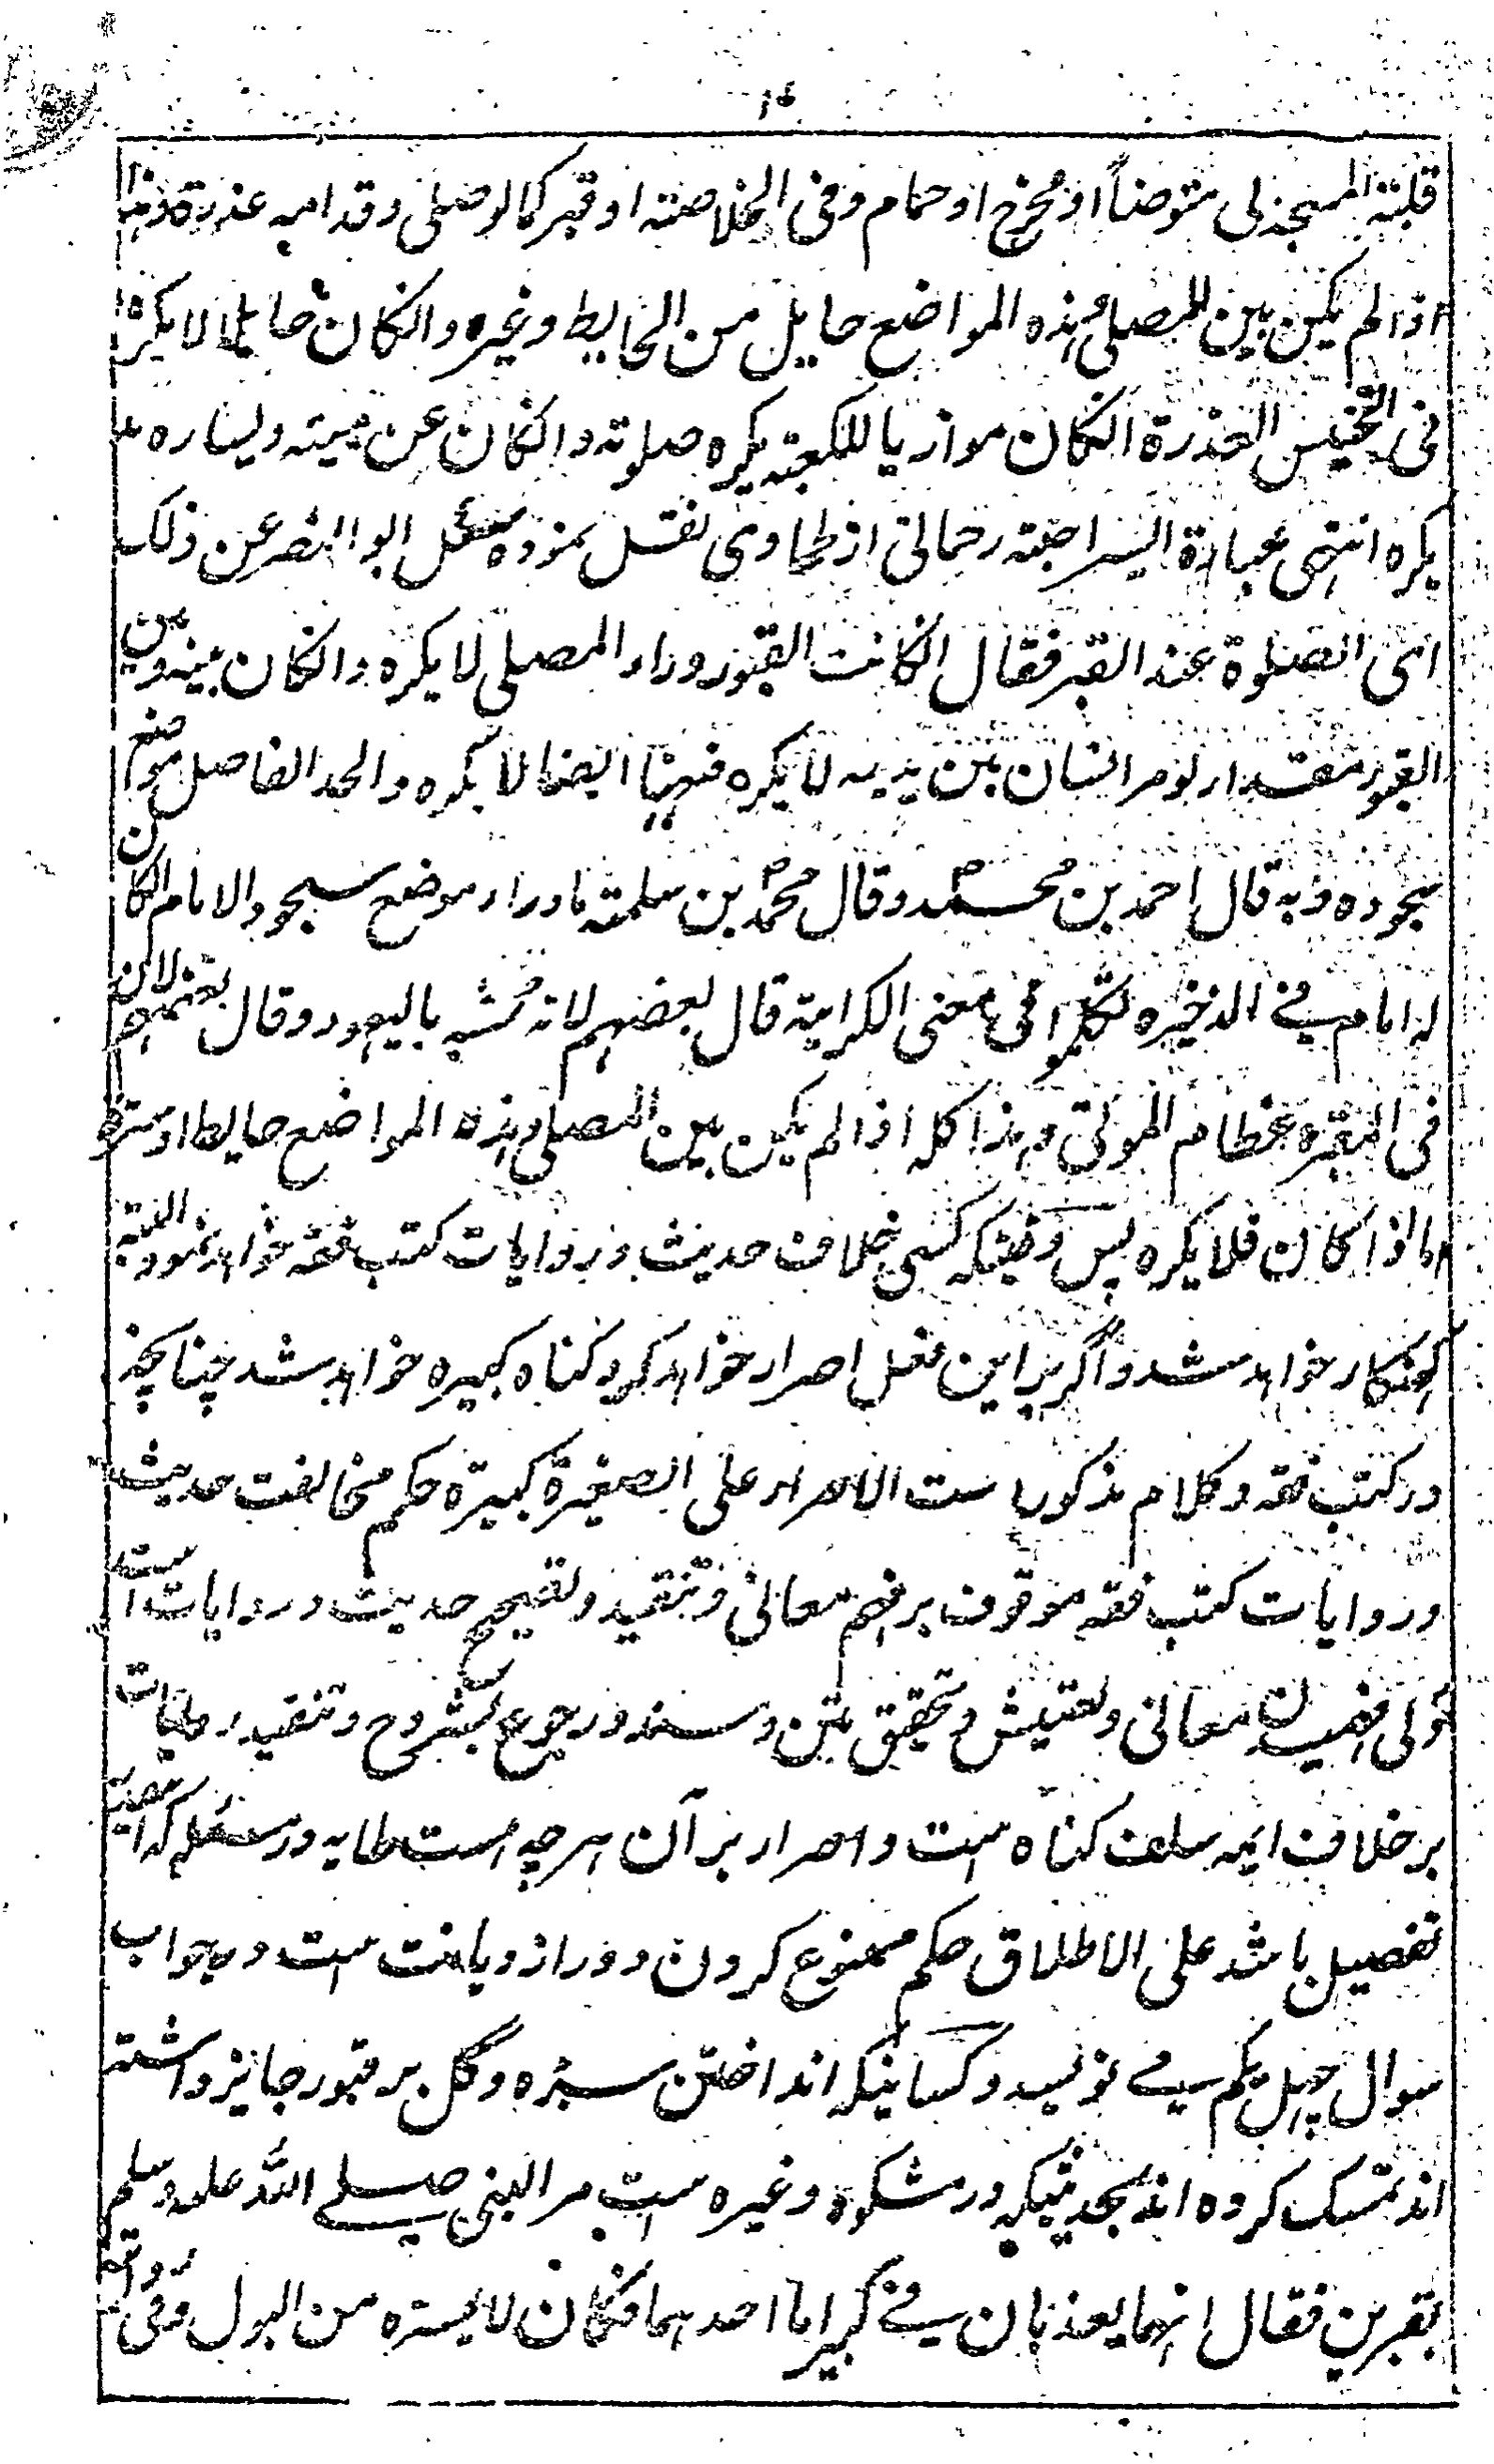 ۱۶
قبلته المسجد لی متوضأ او مخرج او حمام وفی الخلاصته او قبر کما لو صلی وقدامه عذرة وهذا
اذا لم یکن بین المصلی وهذه المواضع حایل من الحایط وغیره وانکان حایلا لا یکره
فی التجنیس العذرة انکان موازیا للکعبته یکره صلوته وانکان عن یمینه ویساره لا
یکره انتهی عبارة السراجیته رحمانی از طحاوی نقل نموده سئل ابو النصر عن ذلک
ای الصلوة عند القبر فقال انکانت القبور وراء المصلی لا یکره وانکان بینه وبین
القبور مقدار لو مر انسان بین یدیه لا یکره فههنا ایضا لا یکره والحد الفاصل موضع
سجوده وبه قال احمد بن محمد وقال محمد بن سلمته ماوراء موضع سجود الامام انکان
له امام فے الذخیره تکلموا فی معنی الکراهیته قال بعضهم لانه تشبه بالیهود وقال بعضهم لان
فی المقبره عظام الموتی وهذا کله اذا لم یکن بین المصلی وهذه المواضع حایط او ستره
اما اذا کان فلا یکره پس وقتیکه کسی خلاف حدیث و روایات کتب فقه خواهد نمود البته
گنهکار خواهد شد و اگر بر این فعل اصرار خواهد کرد گناه کبیره خواهد شد چنانچه
در کتب فقه و کلام مذکور است الاصرار علی الصغیرة کبیرة حکم مخالفت حدیث
و روایات کتب فقه موقوف بر فهم معانی و تنقید و تصحیح حدیث و روایات است
معانی و تفتیش و تحقیق متن و سند و رجوع بشروح و تنقید روایات
بر خلاف ایمه سلف گناه است و اصرار بر آن هر چه است طایه و در مسئله که
تفصیل باشد علی الاطلاق حکم ممنوع کردن دور از دیانت است و بجواب
سوال چهل یکم مے نویسد و کسانیکه انداختن سبزه و گل بر قبور جایز داشته
اند تمسک کرده اند بحدیثیکه در مشکوة و غیره است مر النبی صلے الله علیه وسلم
بقبرین فقال انهما یعذبان فے کبیر اما احدهما فکان لا یستره من البول وفی روایته